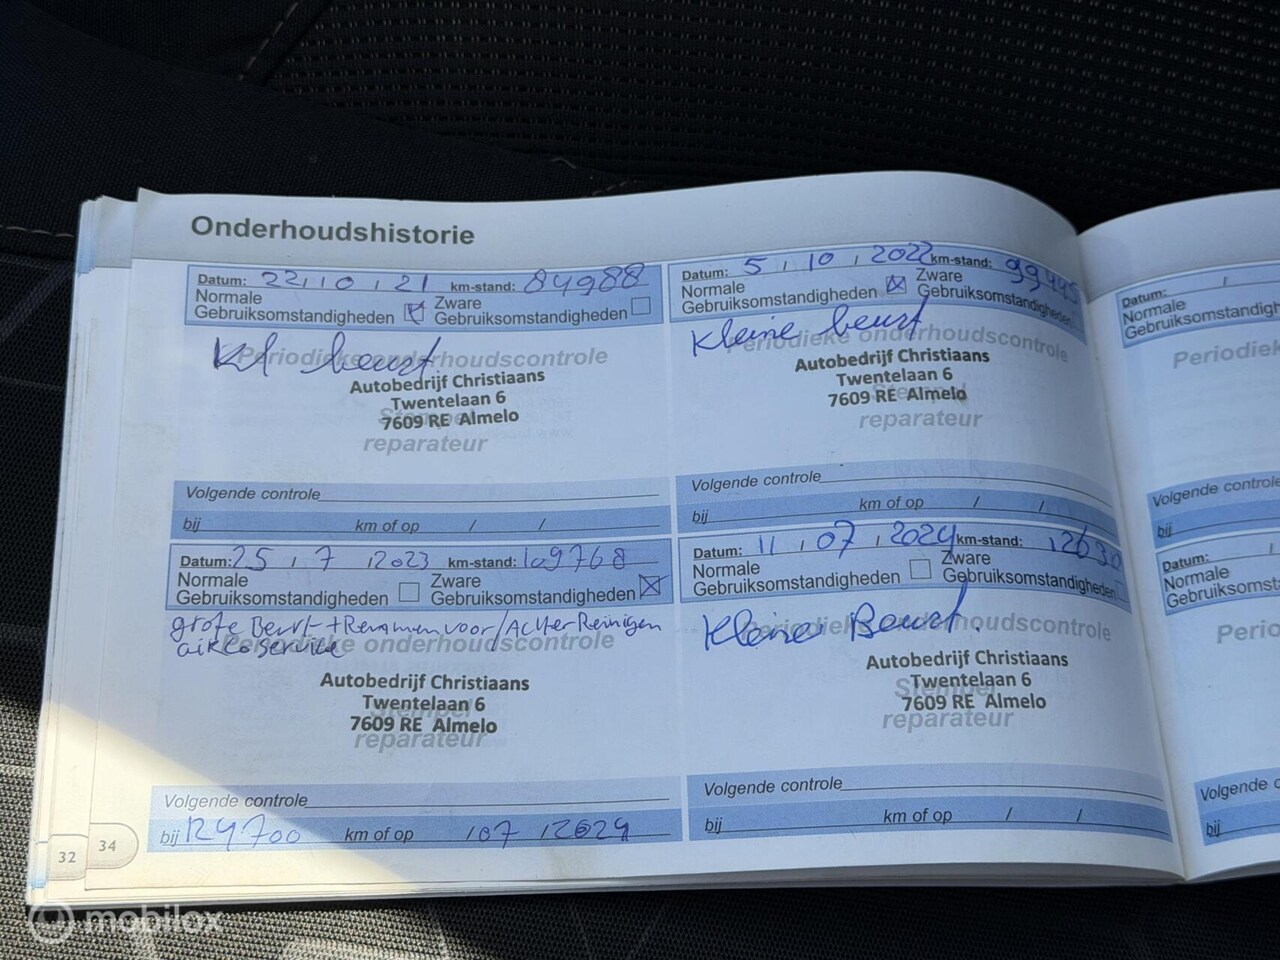 Onderhoudshistorie
Datum: 22,10,21 km-stand: 84988
Normale
Gebruiksomstandigheden
Zware
Gebruiksomstandigheden
Kl beurt
Periodieke onderhoudscontrole
Autobedrijf Christiaans
Twentelaan 6
7609 RE Almelo
Stempel
reparateur
Volgende controle
bij km of op / /
Datum: 5, 10, 2022 km-stand: 99445
Normale
Gebruiksomstandigheden
Zware
Gebruiksomstandigheden
Kleine beurt
Periodieke onderhoudscontrole
Autobedrijf Christiaans
Twentelaan 6
7609 RE Almelo
Stempel
reparateur
Volgende controle
bij km of op / /
Datum: 25, 7, 2023 km-stand: 109768
Normale
Gebruiksomstandigheden
Zware
Gebruiksomstandigheden
grote Beurt + Remmen voor/Achter Reinigen
airco service
Periodieke onderhoudscontrole
Autobedrijf Christiaans
Twentelaan 6
7609 RE Almelo
Stempel
reparateur
Volgende controle
bij 124700 km of op /07 /2024
Datum: 11, 07, 2024 km-stand:
Normale
Gebruiksomstandigheden
Zware
Gebruiksomstandigheden
Kleine Beurt.
Periodieke onderhoudscontrole
Autobedrijf Christiaans
Twentelaan 6
7609 RE Almelo
Stempel
reparateur
Volgende controle
bij km of op / /
Datum: /
Normale
Gebruiksomstandigh
Periodiek
Volgende controle
bij
Datum: /
Normale
Gebruiksomsta
Perio
Volgende c
bij
32 34
mobilox